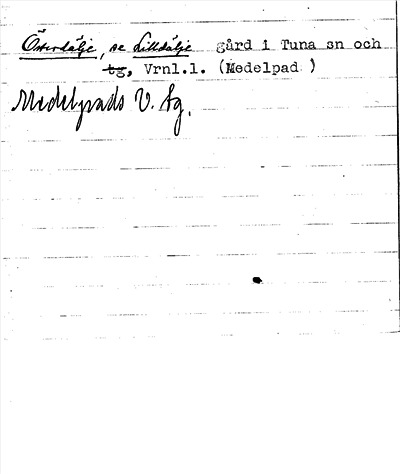 Österdälje, se Lilldälje gård i Tuna sn och
tg, Vrnl.l. (Medelpad )
Medelpads V. tg.